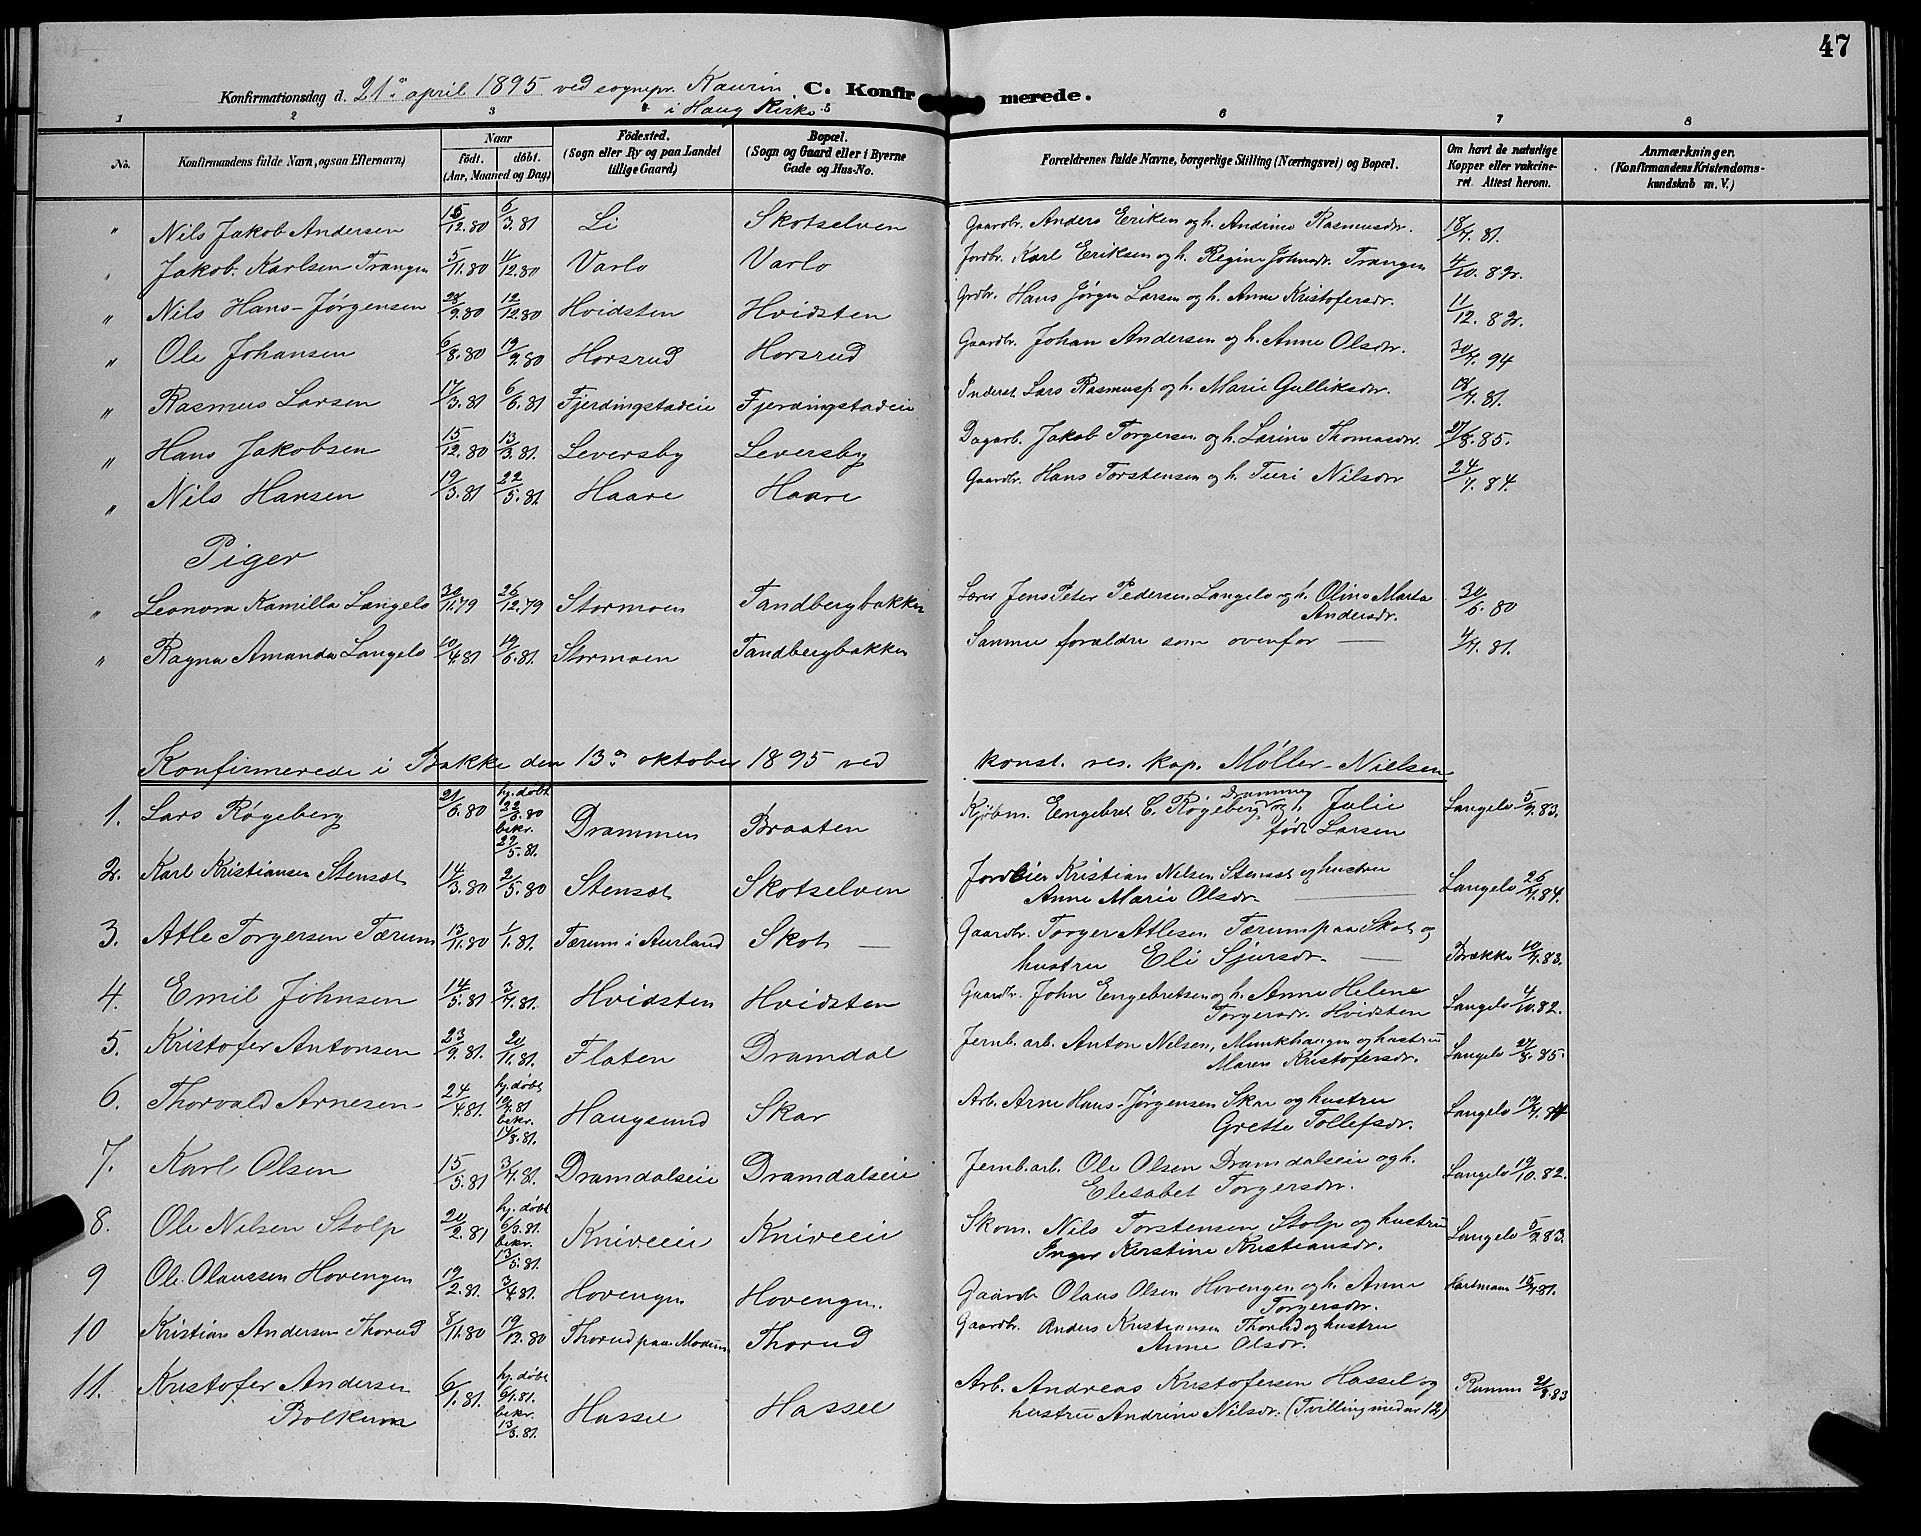 47
Konfirmationsdag d. 21de april 1895 ved sognepr. Kaurin C. Konfirmerede.
i Haug Kirke
1 2 3 4 5 6 7 8
No. Konfirmandens fulde Navn, ogsaa Efternavn) Naar födt. döbt. (Aar, Maaned og Dag) Födested. (Sogn eller By og paa Landet tillige Gaard) Bopæl. (Sogn og Gaard eller i Byerne Gade og Hus-No. Forældrenes fulde Navne, borgerlige Stilling (Næringsvei) og Bopæl. Om havt de naturlige Kopper eller vakcineret. Attest herom. Anmærkninger. (Konfirmandens Kristendomskundskab m. V.)
" Nils Jakob Andersen 15/12.80 6/3.81 Li Skotselven Gaardbr. Anders Eriksen og h. Andrine Rasmusdr. 18/7.81.
" Jakob Karlsen Trangen 5/11.80 4/12.80 Varlo Varlo Jordbr. Karl Eriksen og h. Regine Johnsdr. Trangen 4/10.82.
" Nils Hans-Jørgensen 28/9.80 12/12.80 Hvidsten Hvidsten Grdbr. Hans Jørgen Larsen og h. Anne Kristofersdr. 11/12.82.
" Ole Johansen 6/8.80 19/9.80 Horsrud Horsrud Gaardbr. Johan Andersen og h. Anne Olsdr. 30/7.94
" Rasmus Larsen 17/3.81 6/6.81 Fjerdingstadeie Fjerdingstadeie Inderst Lars Rasmuss. og h. Marie Gulliksdr. 18/7.81.
" Hans Jakobsen 15/12.80 13/3.81. Leversby Leversby Dagarb. Jakob Torgersen og h. Larine Thomasdr. 27/8.85.
" Nils Hansen 19/3.81 22/5.81 Haare Haare Gaardbr. Hans Torstensen og h. Turi Nilsdr 24/7.84.
Piger
" Leonora Kamilla Langelo 30/11.79 26/12.79 Stormoen Tandbergbakken Lærer Jens Peter Pedersen Langelo og h. Oline Marta Andersdr. 30/6.80
" Ragna Amanda Langelo 10/4.81 19/6.81. Stormoen Tandbergbakken Samme forældre som ovenfor — 4/7.81.
Konfirmerede i Bakke den 13de oktober 1895 ved konst. res. kap. Møller-Nielsen
1. Lars Røgeberg 21/6.80 hj. døbt 22/6.80 bekr. 29/5.81. Drammen Braaten Kjøbm. Engebret C. Røgeberg Drammen og h. Julie født Larsen Langelo 5/9.83.
2. Karl Kristiansen Stensæt 14/3.80 2/5.80 Stensæt Skotselven Jordeier Kristian Nilsen Stensæt og hustru Anne Marie Olsdr. — Langelo 26/7.84.
3. Atle Torgersen Tærum 13/11.80 1/1.81. Tærum i Aurland Skot — Gaardbr. Torger Atlesen Tærum paa Skot og hustru Eli Sjursdr. — Brække 10/7.83.
4. Emil Johnsen 14/5.81 3/7.81. Hvidsten Hvidsten Gaardbr. John Engebretsen og h. Anne Helene Torgersdr. Hvidsten Langelo 4/10.82.
5. Kristofer Antonsen 23/9.81. 20/11.81. Flaten Dramdal Jernb. arb. Anton Nilsen, Munkhaugen og hustru Maren Kristofersdr. Langelo 27/8.85.
6. Thorvald Arnesen 24/4.81. hj. døbt 19/7.81 bekr. 14/8.81. Haugsund Skar Arb. Arne Hans-Jørgensen Skar og hustru Grette Tollefsdr. Langelo 19/7.84
7. Karl Olsen 15/5.81 3/7.81. Dramdalseie Dramdalseie Jernb. arb. Ole Olsen Dramdalseie og h. Elesabet Torgersdr. Langelo 19/10.82.
8. Ole Nilsen Stolp 20/2.81 hj. døbt 6/3.81. bekr. 13/5.81. Kniveeie Kniveeie Skom. Nils Torstensen Stolp og hustru Inger Kirstine Kristiansdr. Langelo 5/9.83.
9 Ole Olaussen Hovengen 19/2.81. 3/4.81. Hovengen Hovengen. Gaardb. Olaus Olsen Hovengen og h. Anne Torgersdr. Hartmann 15/7.81.
10 Kristian Andersen Thorud 8/11.80 19/12.80 Thorud paa Modum Thorud Gaardbr. Anders Kristiansen Thorud og hustru Anne Olsdr.
11. Kristofer Andersen Bolkum 6/1.81. hj. døbt 6/1.81. bekr. 13/3.81. Hassel Hassel Arb. Andreas Kristofersen Hassel og hustru Andrine Nilsdr. (Tvilling med nr 12) Ramm 21/8.83